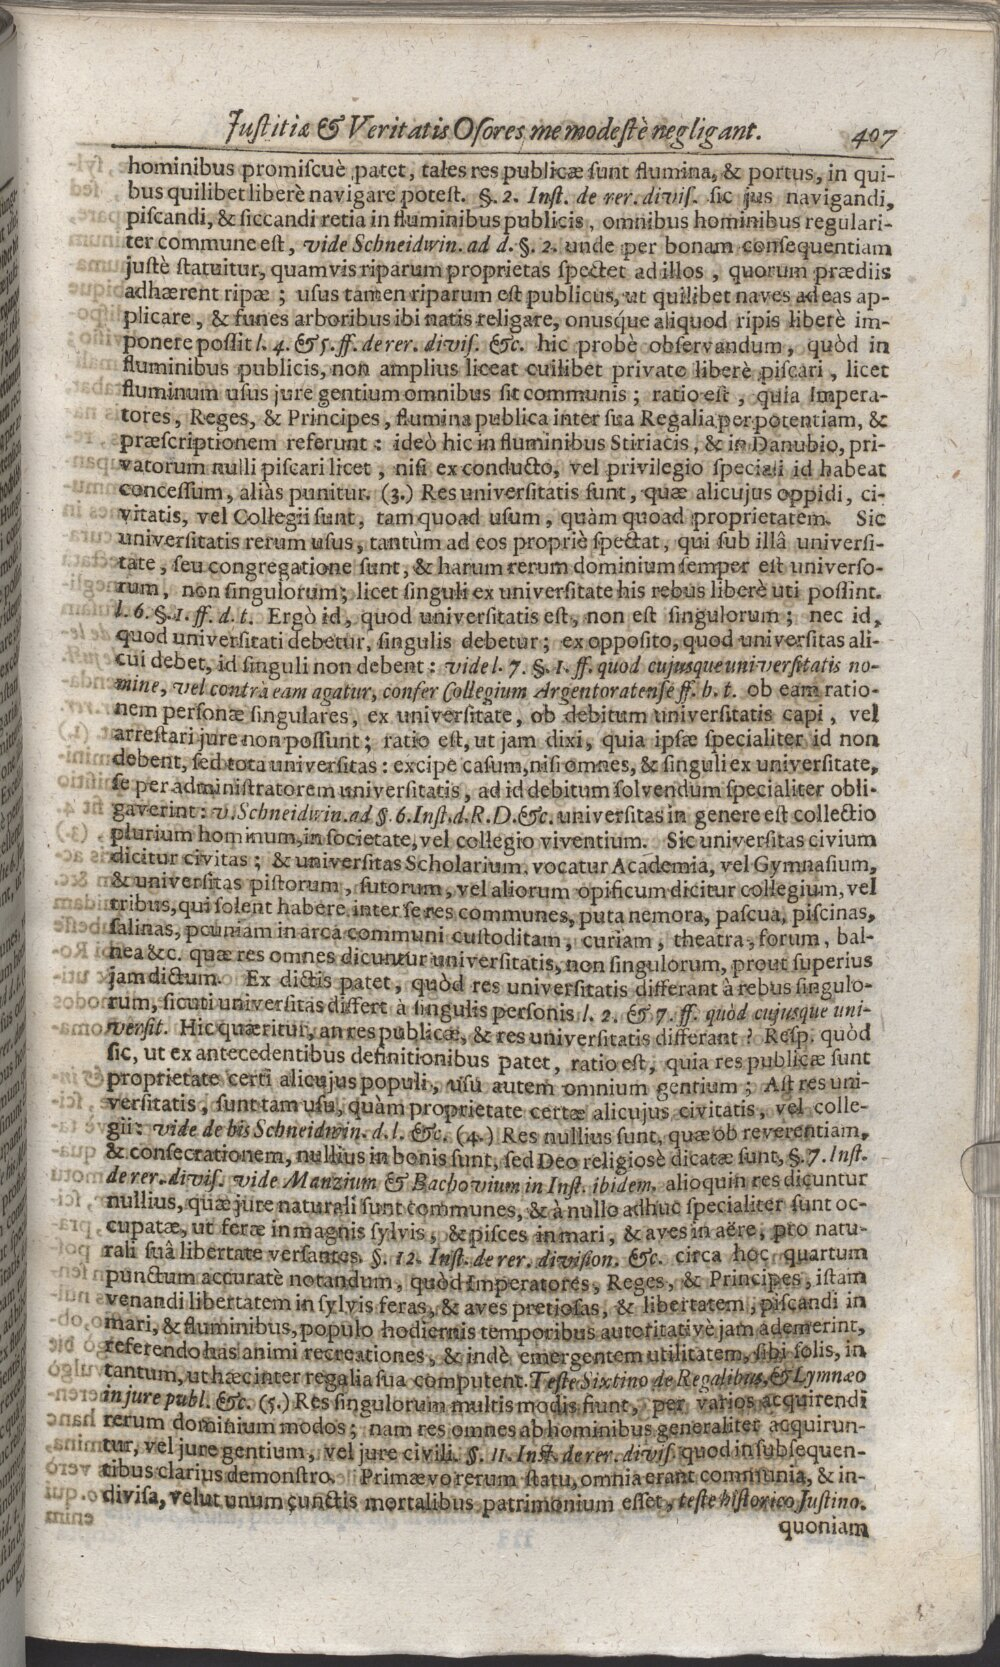 Justitiæ & Veritatis Osores me modestè negligant. 407
hominibus promiscuè patet, tales res publicæ sunt flumina, & portus, in qui-
bus quilibet liberè navigare potest. §. 2. Inst. de rer. divis. sic jus navigandi,
piscandi, & siccandi retia in fluminibus publicis, omnibus hominibus regulari-
ter commune est, vide Schneidwin. ad d. §. 2. unde per bonam consequentiam
justè statuitur, quamvis riparum proprietas spectet ad illos, quorum prædiis
adhærent ripæ; usus tamen riparum est publicus, ut quilibet naves ad eas ap-
plicare, & funes arboribus ibi natis religare, onusq́ue aliquod ripis liberè im-
ponere possit l. 4. & 5. ff. de rer. divis. &c. hic probè observandum, quòd in
fluminibus publicis, non amplius liceat cuilibet privato liberè piscari, licet
fluminum usus jure gentium omnibus sit communis; ratio est, quia Impera-
tores, Reges, & Principes, flumina publica inter sua Regalia per potentiam, &
præscriptionem referunt: ideò hic in fluminibus Stiriacis, & in Danubio, pri-
vatorum nulli piscari licet, nisi ex conducto, vel privilegio speciali id habeat
concessum, aliàs punitur. (3.) Res universitatis sunt, quæ alicujus oppidi, ci-
vitatis, vel Collegii sunt, tam quoad usum, quàm quoad proprietatem. Sic
universitatis rerum usus, tantùm ad eos propriè spectat, qui sub illâ universi-
tate, seu congregatione sunt, & harum rerum dominium semper est universo-
rum, non singulorum; licet singuli ex universitate his rebus liberè uti possint.
l. 6. §. 1. ff. d. t. Ergò id, quod universitatis est, non est singulorum; nec id,
quod universitati debetur, singulis debetur; ex opposito, quod universitas ali-
cui debet, id singuli non debent: vide l. 7. §. 1. ff. quod cujusque universitatis no-
mine, vel contrà eam agatur, confer Collegium Argentoratense ff. b. t. ob eam ratio-
nem personæ singulares, ex universitate, ob debitum universitatis capi, vel
arrestari jure non possunt; ratio est, ut jam dixi, quia ipsæ specialiter id non
debent, sed tota universitas: excipe casum, nisi omnes, & singuli ex universitate,
se per administratorem universitatis, ad id debitum solvendum specialiter obli-
gaverint: v. Schneidwin. ad §. 6. Inst. d. R. D. &c. universitas in genere est collectio
plurium hominum, in societate, vel collegio viventium. Sic universitas civium
dicitur civitas; & universitas Scholarium, vocatur Academia, vel Gymnasium,
& universitas pistorum, sutorum, vel aliorum opificum dicitur collegium, vel
tribus, qui solent habere inter se res communes, puta nemora, pascua, piscinas,
salinas, pcuniam in arca communi custoditam, curiam, theatra, forum, bal-
nea &c. quæ res omnes dicuntur universitatis, non singulorum, prout superius
jam dictum. Ex dictis patet, quòd res universitatis differant à rebus singulo-
rum, sicuti universitas differt à singulis personis l. 2. & 7. ff. quòd cujusque uni-
versit. Hic quæritur, an res publicæ, & res universitatis differant? Resp. quòd
sic, ut ex antecedentibus definitionibus patet, ratio est, quia res publicæ sunt
proprietate certi alicujus populi, usu autem omnium gentium; Ast res uni-
versitatis, sunt tam usu, quàm proprietate certæ alicujus civitatis, vel colle-
gii: vide de his Schneidwin. d. l. &c. (4.) Res nullius sunt, quæ ob reverentiam,
& consecrationem, nullius in bonis sunt, sed Deo religiosè dicatæ sunt, §. 7. Inst.
de rer. divis. vide Manzium & Bachovium in Inst. ibidem. alioquin res dicuntur
nullius, quæ jure naturali sunt communes, & à nullo adhuc specialiter sunt oc-
cupatæ, ut feræ in magnis sylvis, & pisces in mari, & aves in aëre, pro natu-
rali suâ libertate versantes. §. 12. Inst. de rer. division. &c. circa hoc quartum
punctum accuratè notandum, quòd Imperatores, Reges, & Principes, istam
venandi libertatem in sylvis feras, & aves pretiosas, & libertatem, piscandi in
mari, & fluminibus, populo hodiernis temporibus autoritativè jam ademerint,
referendo has animi recreationes, & indè emergentem utilitatem, sibi solis, in
tantum, ut hæc inter regalia sua computent. Teste Sixtino de Regalibus, & Lymnæo
in jure publ. &c. (5.) Res singulorum multis modis fiunt, per varios acquirendi
rerum dominium modos; nam res omnes ab hominibus generaliter acquirun-
tur, vel jure gentium, vel jure civili. §. 11. Inst. de rer. divis. quod in subsequen-
tibus clarius demonstro. Primævo rerum statu, omnia erant communia, & in-
divisa, velut unum cunctis mortalibus patrimonium esset, teste historico Justino.
quoniam